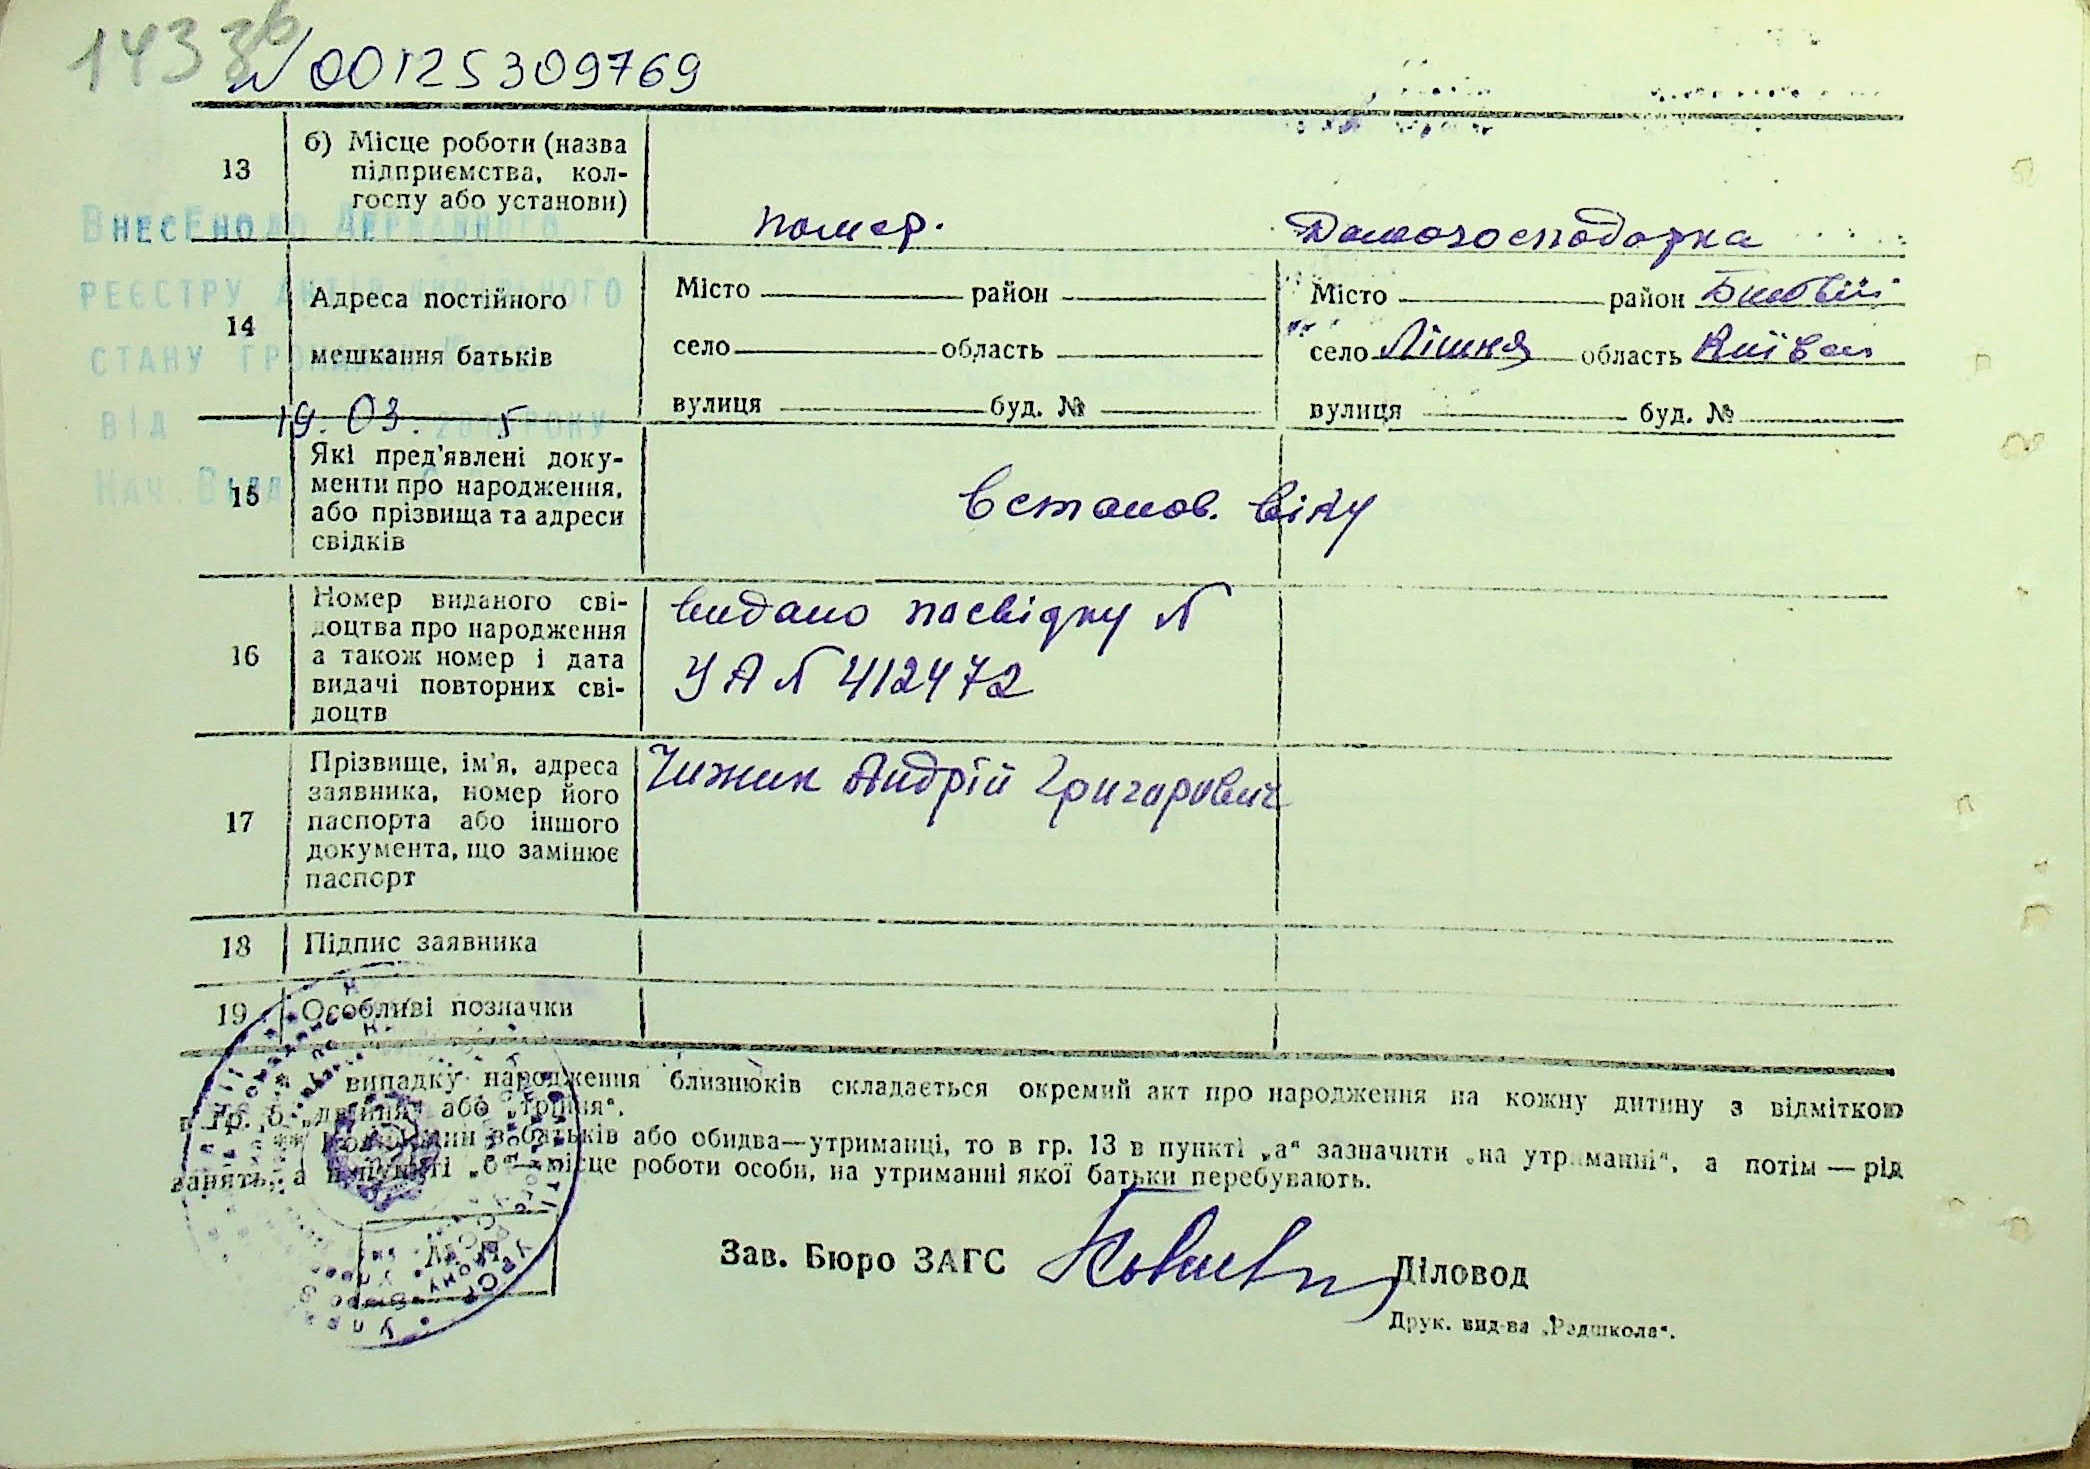 143 зв
N 00125309769
13
б) Місце роботи (назва
підприємства, кол-
госпу або установи)
помер.
Домогосподарка
ВнесЕно до Державного
РЕЄСТРУ АКТІВ ЦИВІЛЬНОГО
СТАНУ ГРОМАДЯН
ВІД 19.03. 2015 РОКУ
НАЧ. ВІДД
14
Адреса постійного
мешкання батьків
Місто район
село область
вулиця буд. №
Місто район
село Лішня область Київськ
вулиця буд. №
15
Які пред'явлені доку-
менти про народження,
або прізвища та адреси
свідків
Встанов. віку
16
Номер виданого сві-
доцтва про народження
а також номер і дата
видачі повторних сві-
доцтв
видано посвідку №
УА № 412472
17
Прізвище, ім'я, адреса
заявника, номер його
паспорта або іншого
документа, що замінює
паспорт
Чижик Андрій Григорович
18
Підпис заявника
19
Особливі позначки
випадку народження близнюків складається окремий акт про народження на кожну дитину з відміткою
гр. 6 „двійня" або „трійня".
** один з батьків або обидва—утриманці, то в гр. 13 в пункті „а" зазначити „на утриманні", а потім — рід
занять, а в пункті „б"—місце роботи особи, на утриманні якої батьки перебувають.
Зав. Бюро ЗАГС
Діловод
Друк. вид-ва „Радшкола".